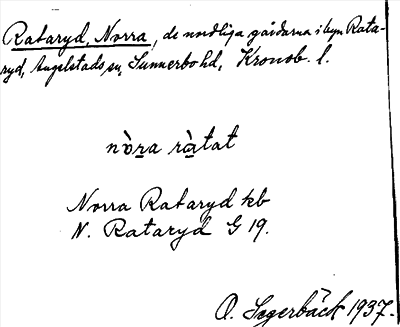 Rataryd, Norra, de nordliga gårdarna i byn Rata-
ryd, Angelstads sn, Sunnerbo hd, Kronob. l.
nò̱ra rà̱tat
Norra Rataryd kb
N. Rataryd G 19.
O. Segerbäck 1937.